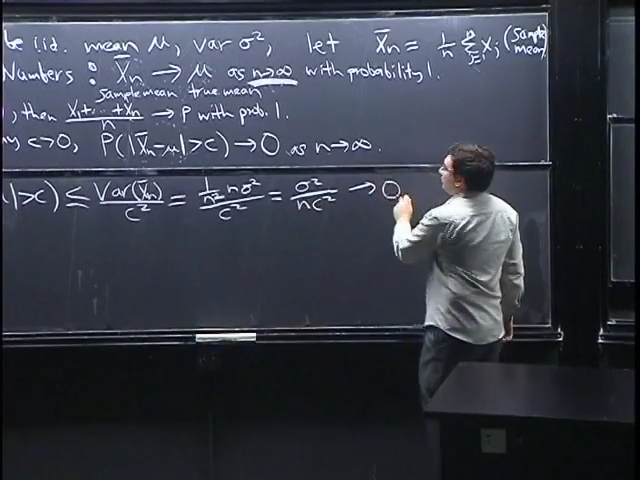 be i.i.d. mean μ, var σ², let X̄n = 1/n Σⁿj=1 Xj (sample mean)
Numbers : X̄n → μ as n→∞ with probability 1.
sample mean true mean
, then X1+...+Xn / n → p with prob. 1
ny c>0, P(|X̄n-μ|>c) → 0 as n→∞.
|>c) ≤ Var(X̄n)/c² = 1/n² nσ² / c² = σ²/nc² → 0